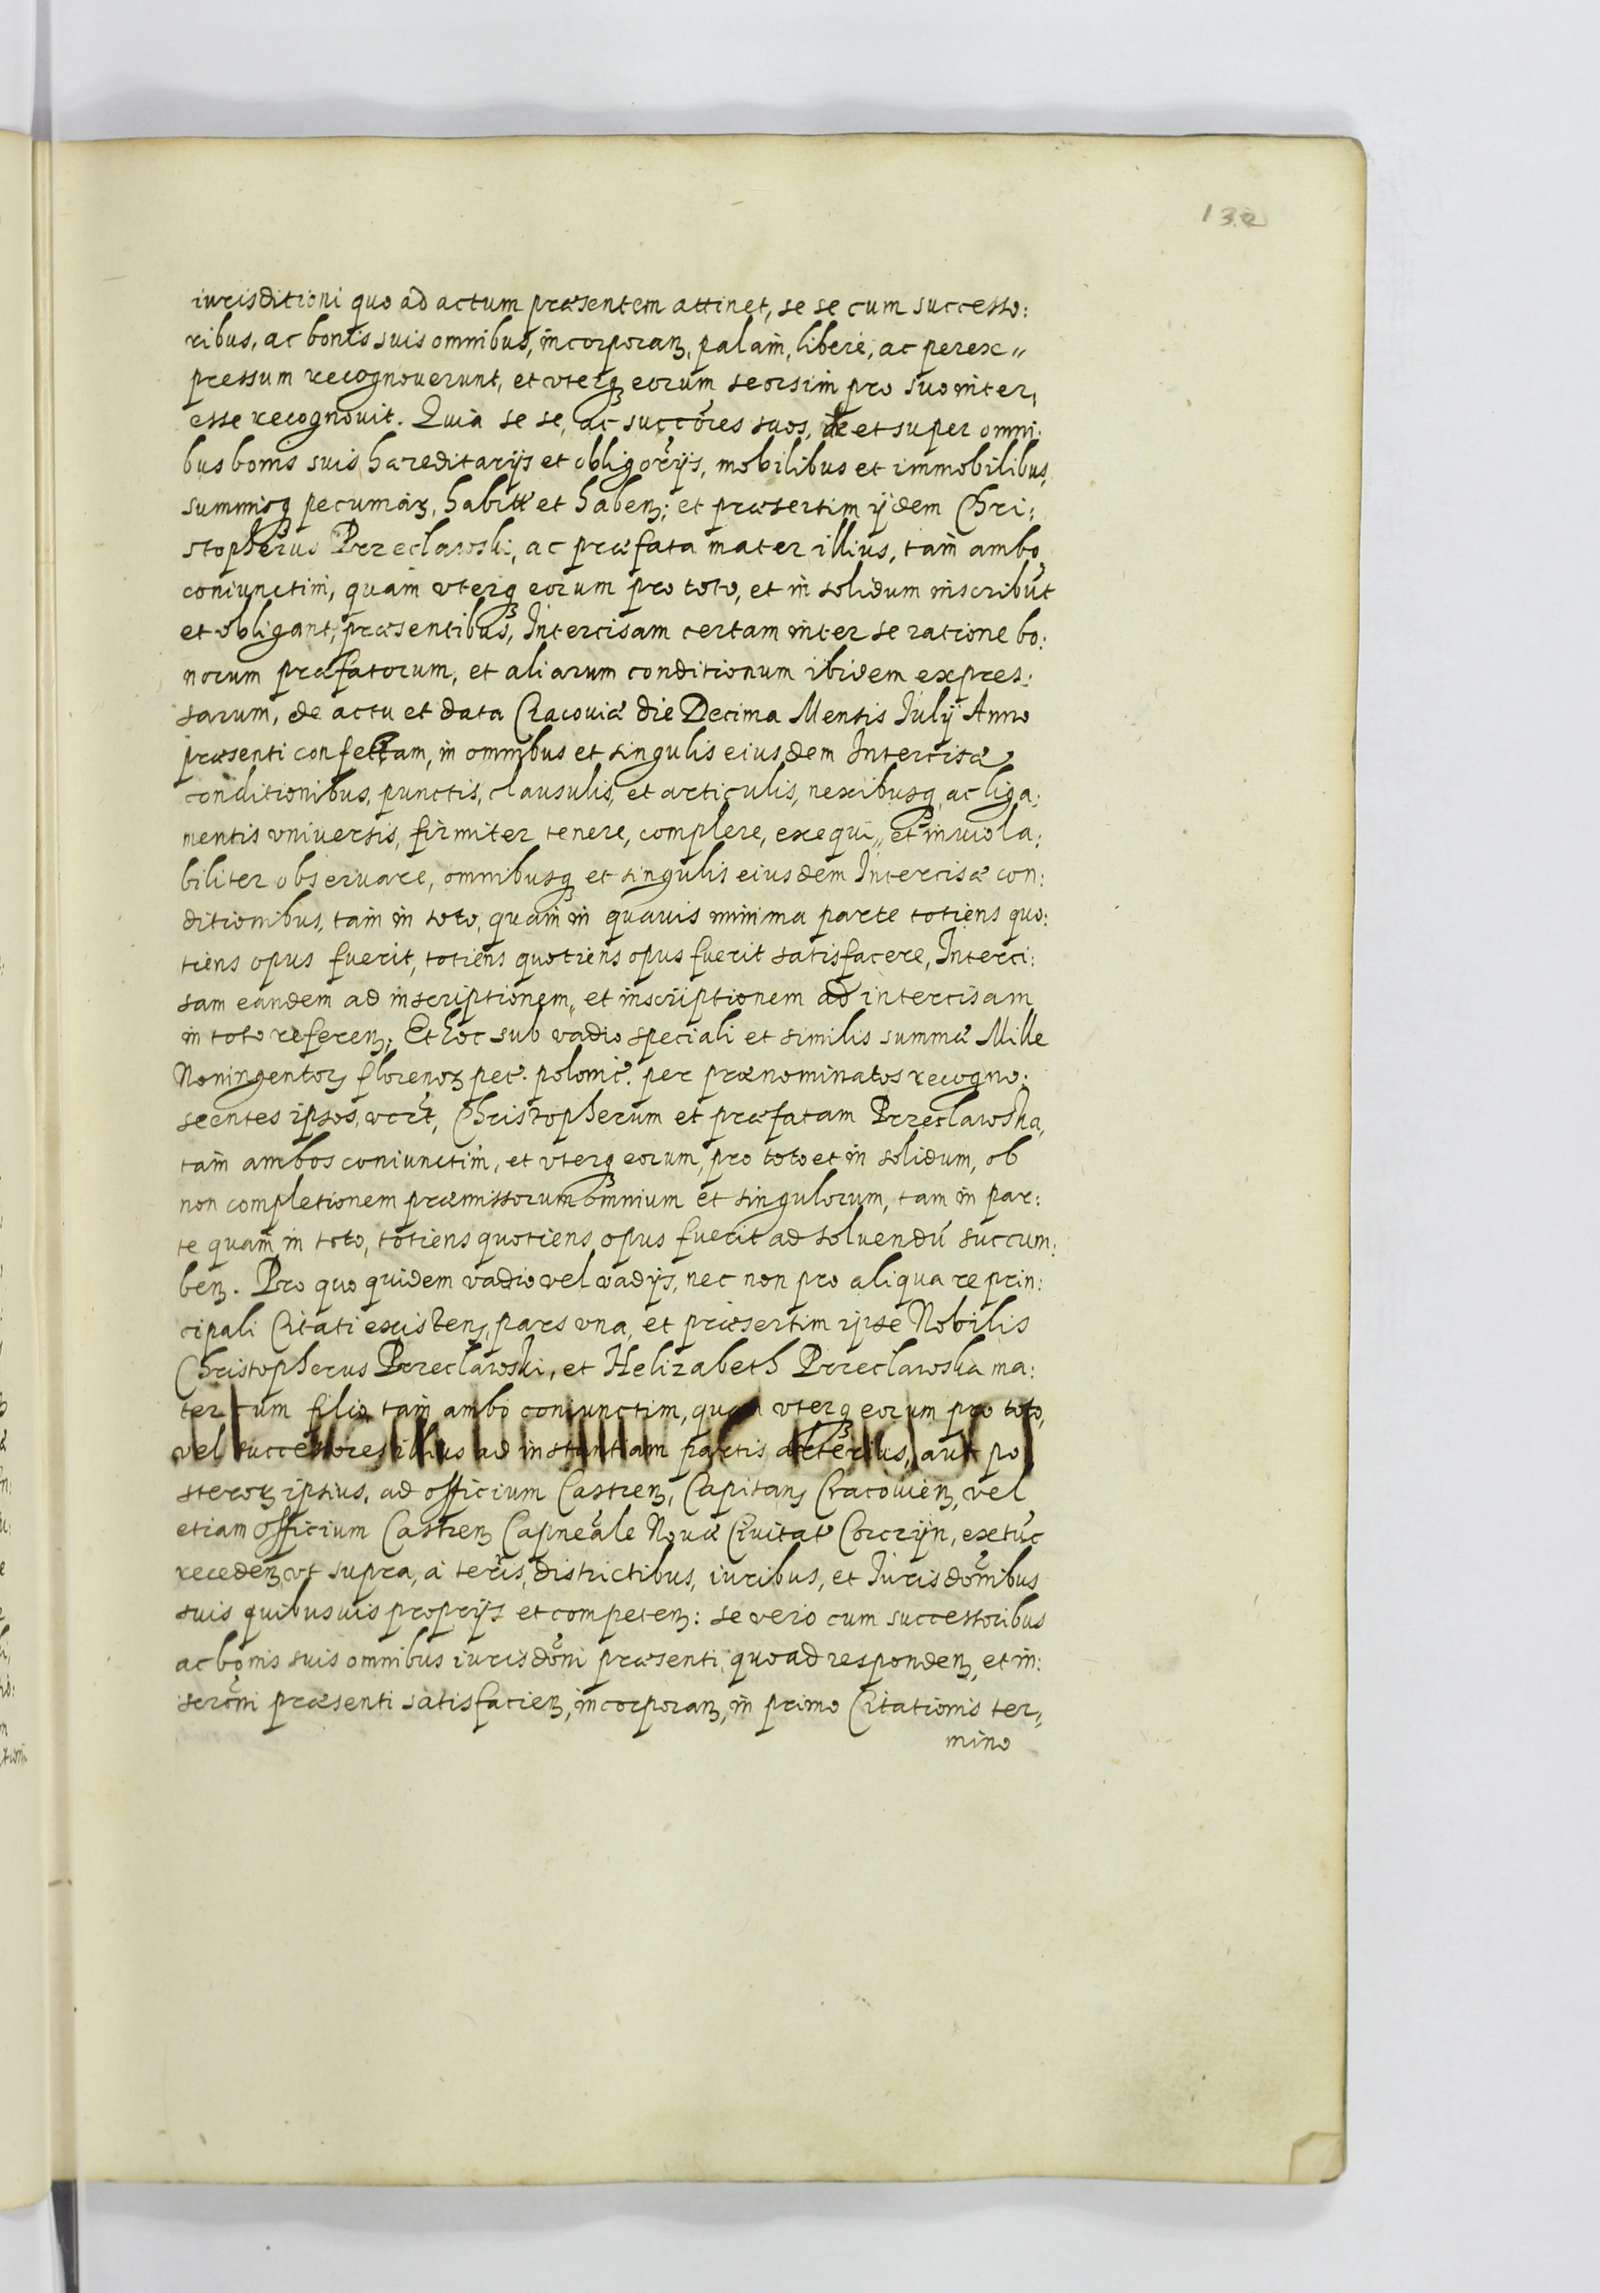 132
iurisditioni quo ad actum præsentem attinet, se se cum successo:
ribus, ac bonis suis omnibus, incorporanꝫ, palam, libere, ac perex„
pressum recognoverunt, et vterqꝫ eorum seorsim pro suo inter,
esse recognovit. Quia se se, ac succores suos, de et super omni:
bus bonis suis hæreditarijs et obligorijs, mobilibus et immobilibus,
summisqꝫ pecuniarꝫ, habit et habenꝫ; et præsertim ijdem Chri:
stopherus Przeclawski, ac præfata mater illius, tam ambo
coniunctim, quam vterqꝫ eorum pro toto, et in solidum inscribut
et obligant, præsentibus, Intercisam certam inter se ratione bo:
norum præfatorum, et aliarum conditionum ibidem expres:
sarum, de actu et data Cracoviæ die Decima Mensis Iulij Anno
præsenti confectam, in omnibus et singulis eiusdem Intercisæ
conditionibus, punctis, clausulis, et articulis, nexibusqꝫ ac liga:
mentis vniversis, firmiter tenere, complere, exequi, et inviola:
biliter observare, omnibusqꝫ et singulis eiusdem Intercisæ con:
ditionibus, tam in toto, quam in quavis minima parte totiens quo:
tiens opus fuerit, totiens quotiens opus fuerit satisfacere, Interci:
sam eandem ad inscriptionem, et inscriptionem ad intercisam
in toto referenꝫ. Et hoc sub vadio speciali et similis summæ Mille
Noningentorꝫ florenorꝫ pec. polonic. per prænominatos recogno:
scentes ipsos, Christopherum et præfatam Przeclawska,
tam ambos coniunctim, et vterqꝫ eorum, pro toto et in solidum, ob
non completionem præmissorum omnium et singulorum, tam in par:
te quam in toto, totiens quotiens opus fuerit ad solvendu succum:
benꝫ. Pro quo quidem vadio vel vadijs, nec non pro aliqua re prin:
cipali Citati existenꝫ, pars vna, et præsertim ipse Nobilis
Christopherus Przeclawski, et Helizabeth Przeclawska ma:
ter cum filio, tam ambo coniunctim, quam vterqꝫ eorum pro toto,
vel successores illius ad instantiam partis alterius, aut po
sterorꝫ ipsius, ad officium Castrenꝫ, Capitanꝫ Cracovienꝫ, vel
etiam officium Castrenꝫ Capneale Novæ Civitat Corczyn, extuc
recedenꝫ, vt supra, a teris, districtibus, iuribus, et Iurisdonibus
suis quibusvis proprijs et competenꝫ: se vero cum successoribus
ac bonis suis omnibus iurisdoni præsenti, quoad respondenꝫ, et in:
scroni præsenti satisfacienꝫ, incorporanꝫ, in primo Citationis ter,
mino